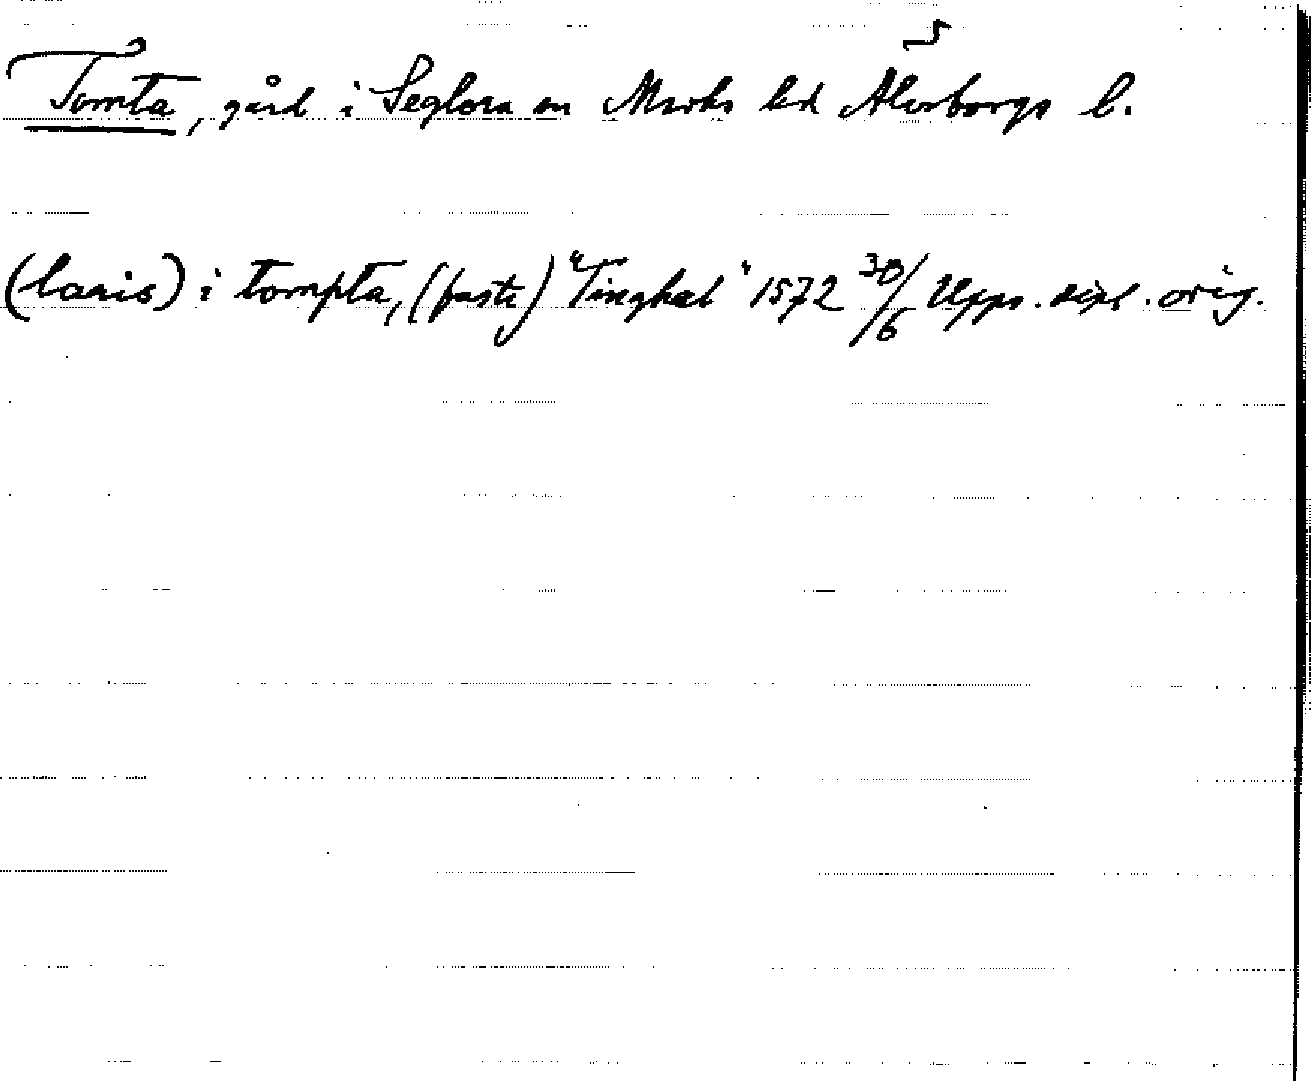 Tomta, gård i Seglora sn Marks hd Älvsborgs l.
(laris) i tompta, (faste) "Tinghæl" 1572 30/6 Upps. dipl. orig.